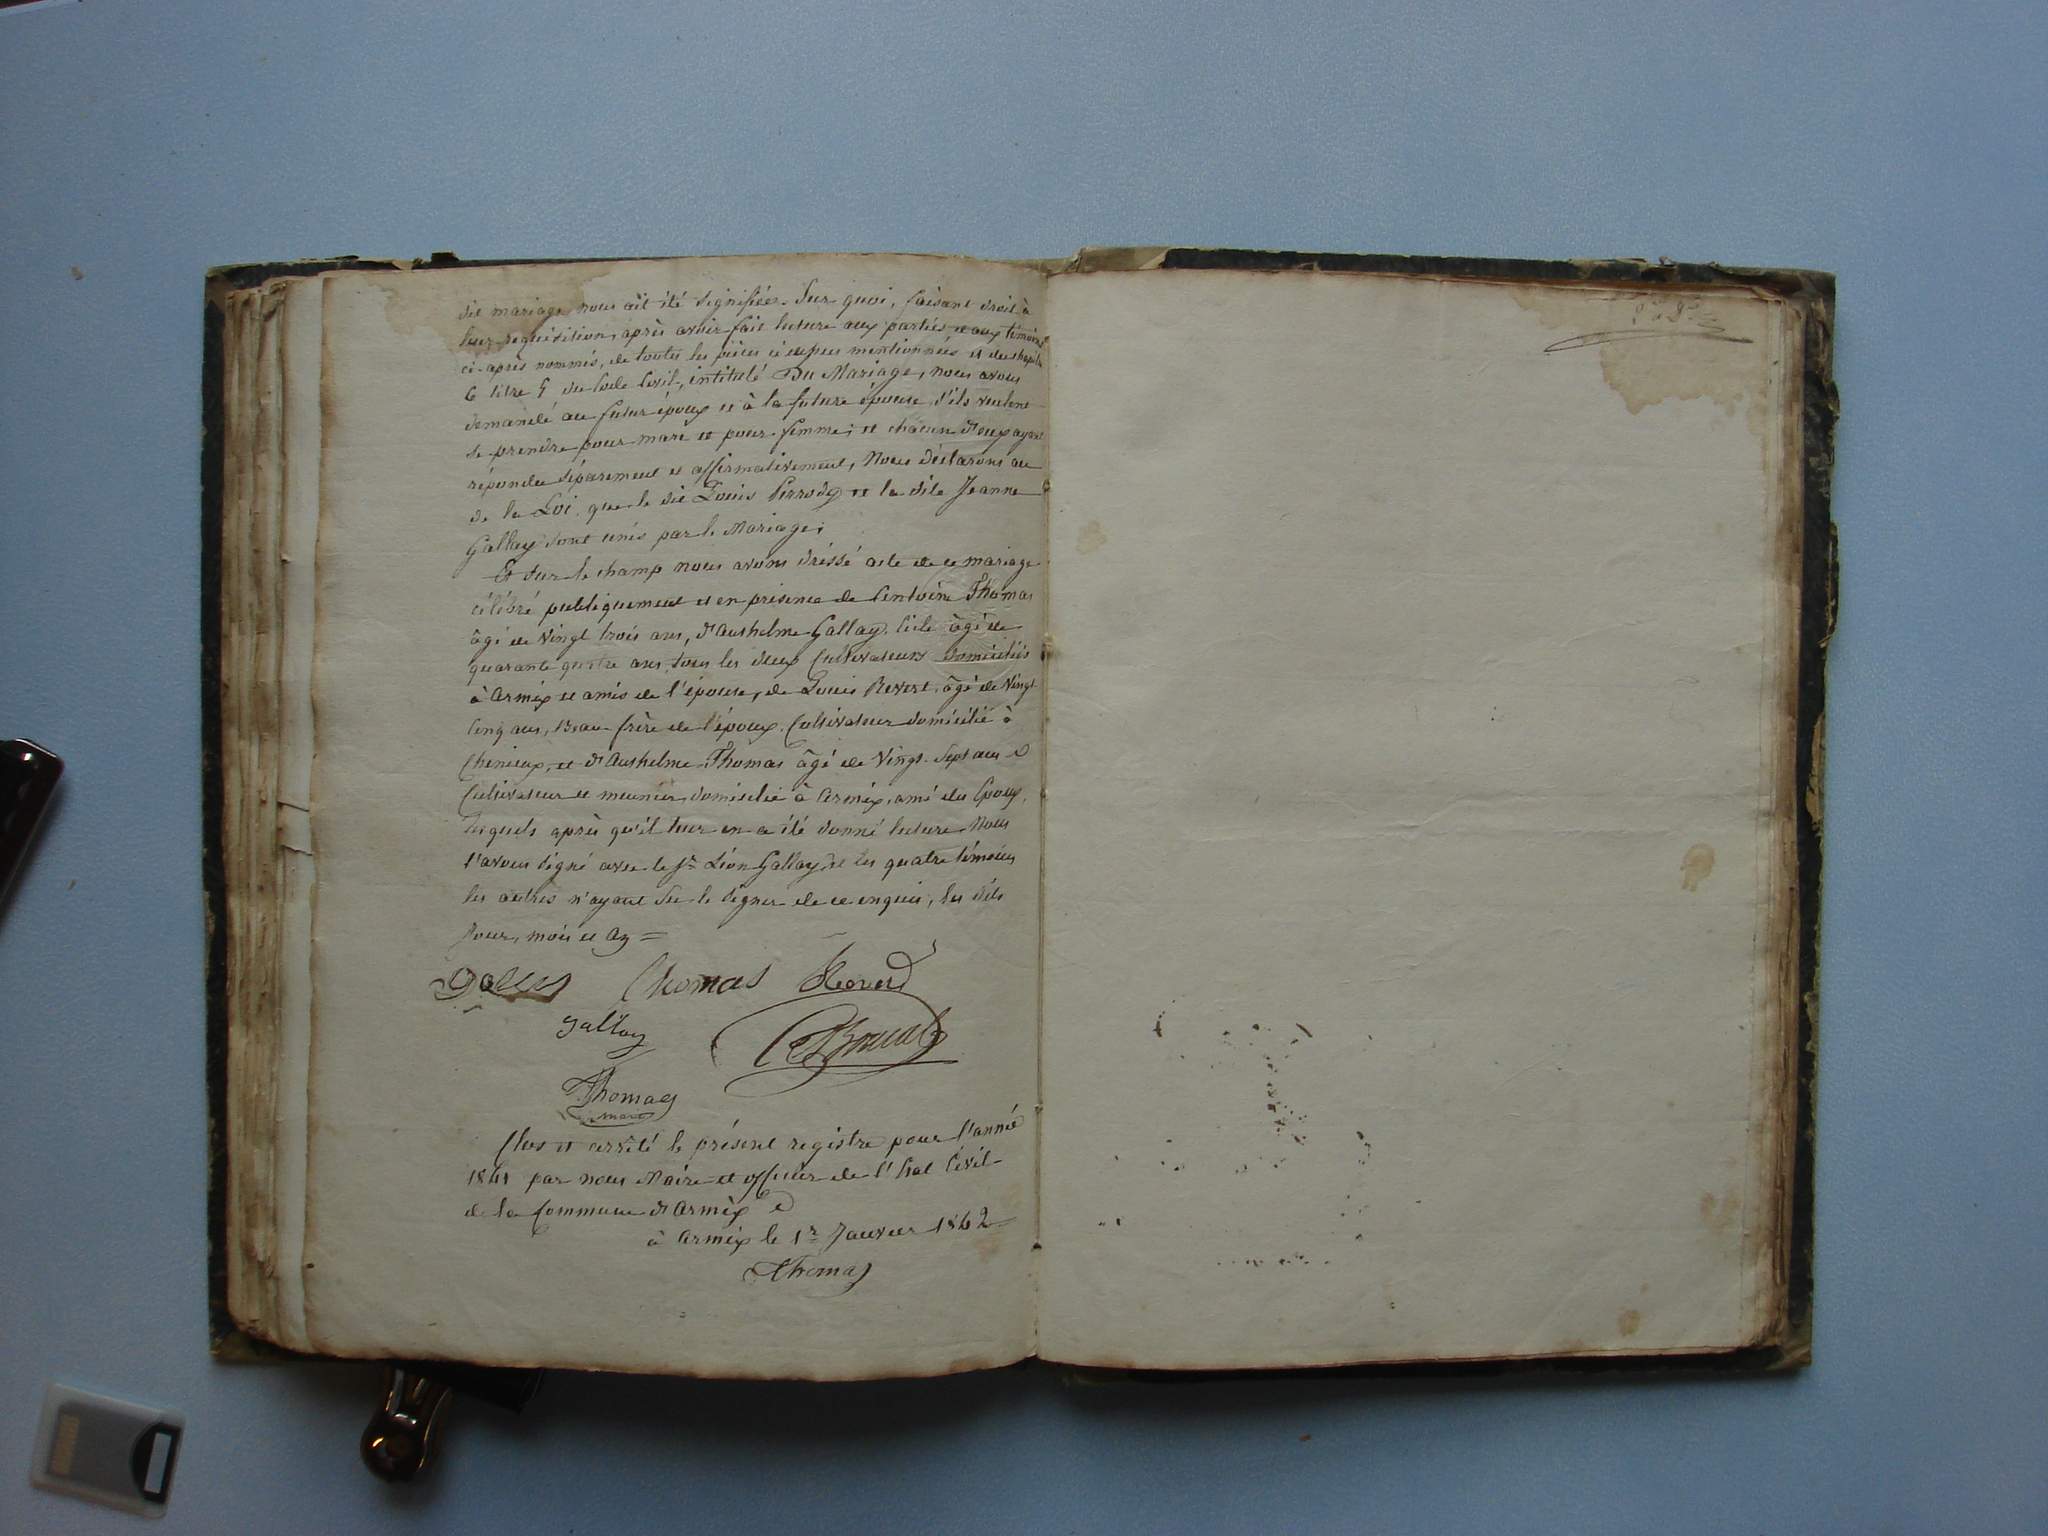 dit mariage nous ait été signifiée. Sur quoi, faisant droit à
leur requisition, après avoir fait lecture aux parties et aux témoins
ci-après nommés, de toutes les pièces ci dessus mentionnées et du chapitre
6 titre 5 du Code Civil, intitulé Du Mariage, nous avons
demandé au futur époux et à la future épouse s'ils veulent
se prendre pour mari et pour femme; et chacun d'eux ayant
répondu séparement et affirmativement, Nous déclarons au
de la Loi que le dit Louis Perrody et la dite Jeanne
Gallay sont unis par le Mariage;
Et sur le champ nous avons dréssé acte de ce mariage
célébré publiquement et en présence de Antoine Thomas
âgé de vingt trois ans, d'Anthelme Gallay âgé de
quarante quatre ans, tous les deux Cultivateurs domiciliés
à Armix et amis de l'épouse, de Louis Revert âgé de Vingt
Cinq ans, Beau-frère de l'époux, Cultivateur domicilié à
et d'Anthelme Thomas âgé de Vingt-Sept ans
Cultivateur et meunier domicilié à Armix, ami du Epoux,
lesquels après qu'il leur en a été donné lecture Nous
l'avons signé avec le Sr Léon Gallay et les quatre témoins
les autres n'ayant su le signer de ce enquis, les dits
Jour, mois et an =
Thomas
gallay
Thomas
maire
Clos et arrêté le présent registre pour l'année
1861 par nous Maire et officier de l'Etat Civil
de la Commune d'Armix
à Armix le 1er Janvier 1862
Thomas